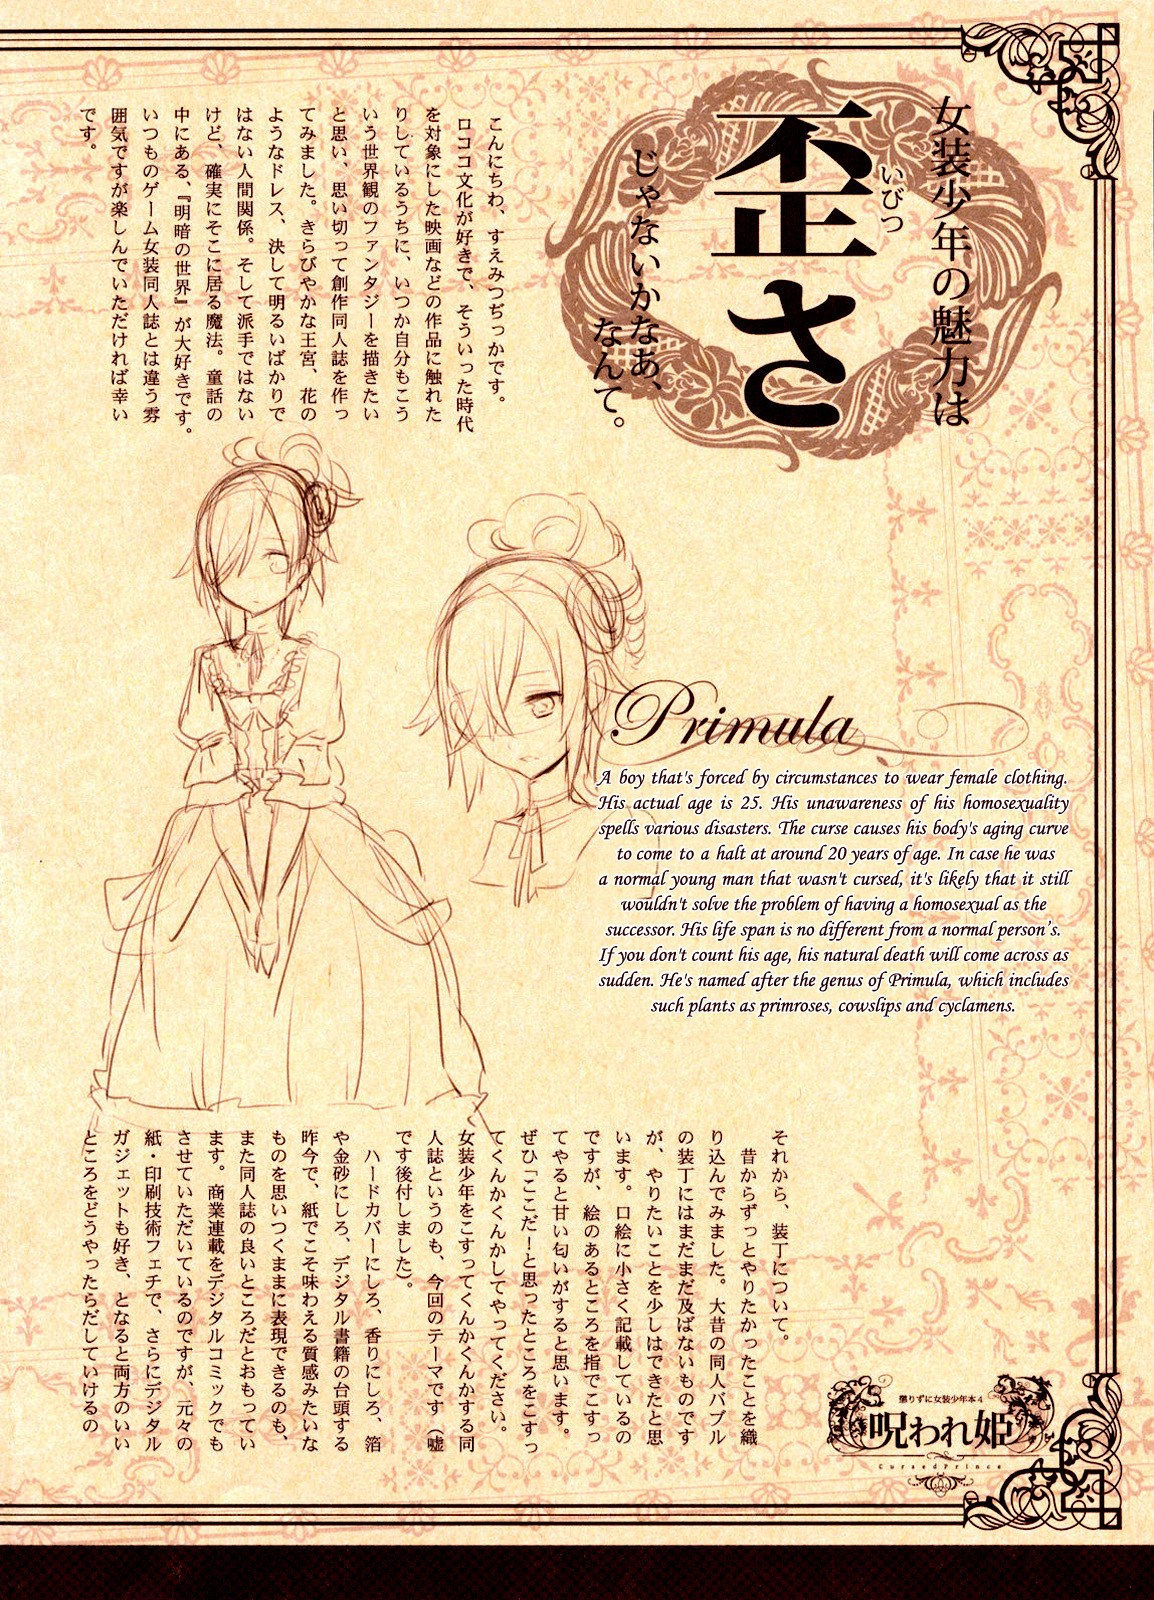 女装少年の魅力は
いびつ
歪さ
じゃないかなあ、
なんて。
こんにちわ、すえみつぢっかです。
ロココ文化が好きで、そういった時代
を対象にした映画などの作品に触れた
りしているうちに、いつか自分もこう
いう世界観のファンタジーを描きたい
と思い、思い切って創作同人誌を作っ
てみました。きらびやかな王宮、花の
ようなドレス、決して明るいばかりで
はない人間関係。そして派手ではない
けど、確実にそこに居る魔法。童話の
中にある、『明暗の世界』が大好きです。
いつものゲーム女装同人誌とは違う雰
囲気ですが楽しんでいただければ幸い
です。
Primula
A boy that's forced by circumstances to wear female clothing.
His actual age is 25. His unawareness of his homosexuality
spells various disasters. The curse causes his body's aging curve
to come to a halt at around 20 years of age. In case he was
a normal young man that wasn't cursed, it's likely that it still
wouldn't solve the problem of having a homosexual as the
successor. His life span is no different from a normal person's.
If you don't count his age, his natural death will come across as
sudden. He's named after the genus of Primula, which includes
such plants as primroses, cowslips and cyclamens.
それから、装丁について。
昔からずっとやりたかったことを織
り込んでみました。大昔の同人バブル
の装丁にはまだまだ及ばないものです
が、やりたいことを少しはできたと思
います。口絵に小さく記載しているの
ですが、絵のあるところを指でこすっ
てやると甘い匂いがすると思います。
ぜひ「ここだ!」と思ったところをこすっ
てくんかくんかしてやってください。
女装少年をこすってくんかくんかする同
人誌というのも、今回のテーマです(嘘
です後付しました)。
ハードカバーにしろ、香りにしろ、箔
や金砂にしろ、デジタル書籍の台頭する
昨今で、紙でこそ味わえる質感みたいな
ものを思いつくままに表現できるのも、
また同人誌の良いところだとおもってい
ます。商業連載をデジタルコミックでも
させていただいているのですが、元々の
紙・印刷技術フェチで、さらにデジタル
ガジェットも好き、となると両方のいい
ところをどうやったらだしていけるの
懲りずに女装少年本4
呪われ姫
CursedPrince